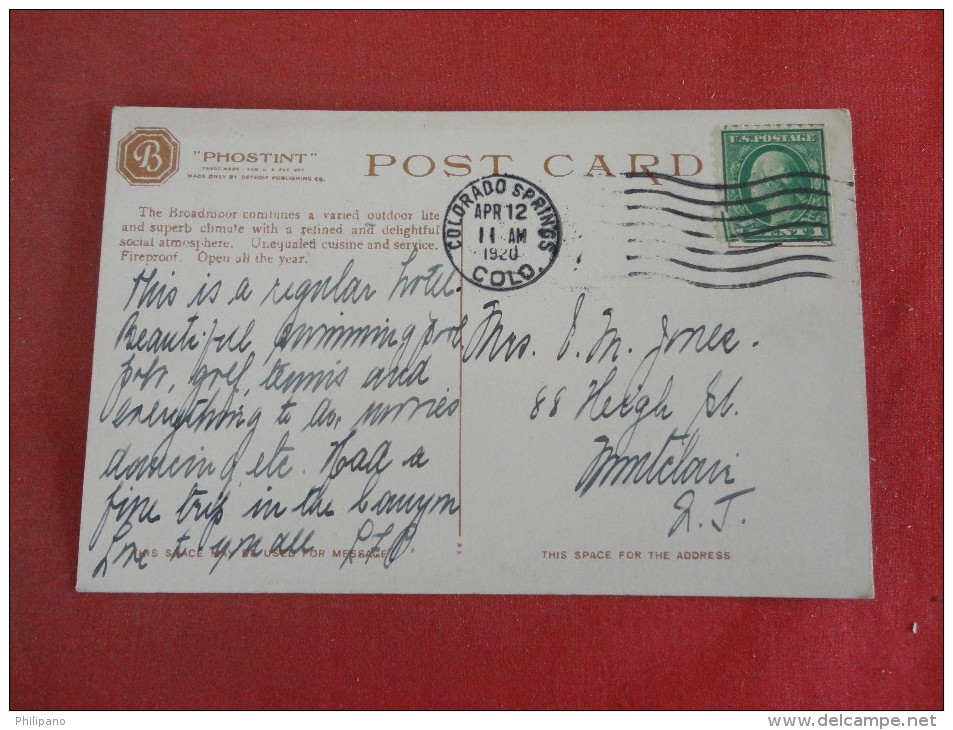 B
"PHOSTINT"
TRADE MARK - REG U.S. PAT. OFF.
MADE ONLY BY DETROIT PUBLISHING CO.
POST CARD
U.S.POSTAGE
CENT 1
COLORADO SPRINGS
APR 12
11 AM
1920
COLO.
The Broadmoor combines a varied outdoor life
and superb climate with a refined and delightful
social atmosphere. Unequaled cuisine and service.
Fireproof. Open all the year.
This is a regular hotel.
Beautiful swimming pool
golf, tennis and
everything to do, movies
dancing etc. Had a
fine trip in the Canyon
Love to you all
Mrs. E. M. Jones.
88 High St.
Montclair
N. J.
THIS SPACE MAY BE USED FOR MESSAGE
THIS SPACE FOR THE ADDRESS
Philipano
www.delcampe.net